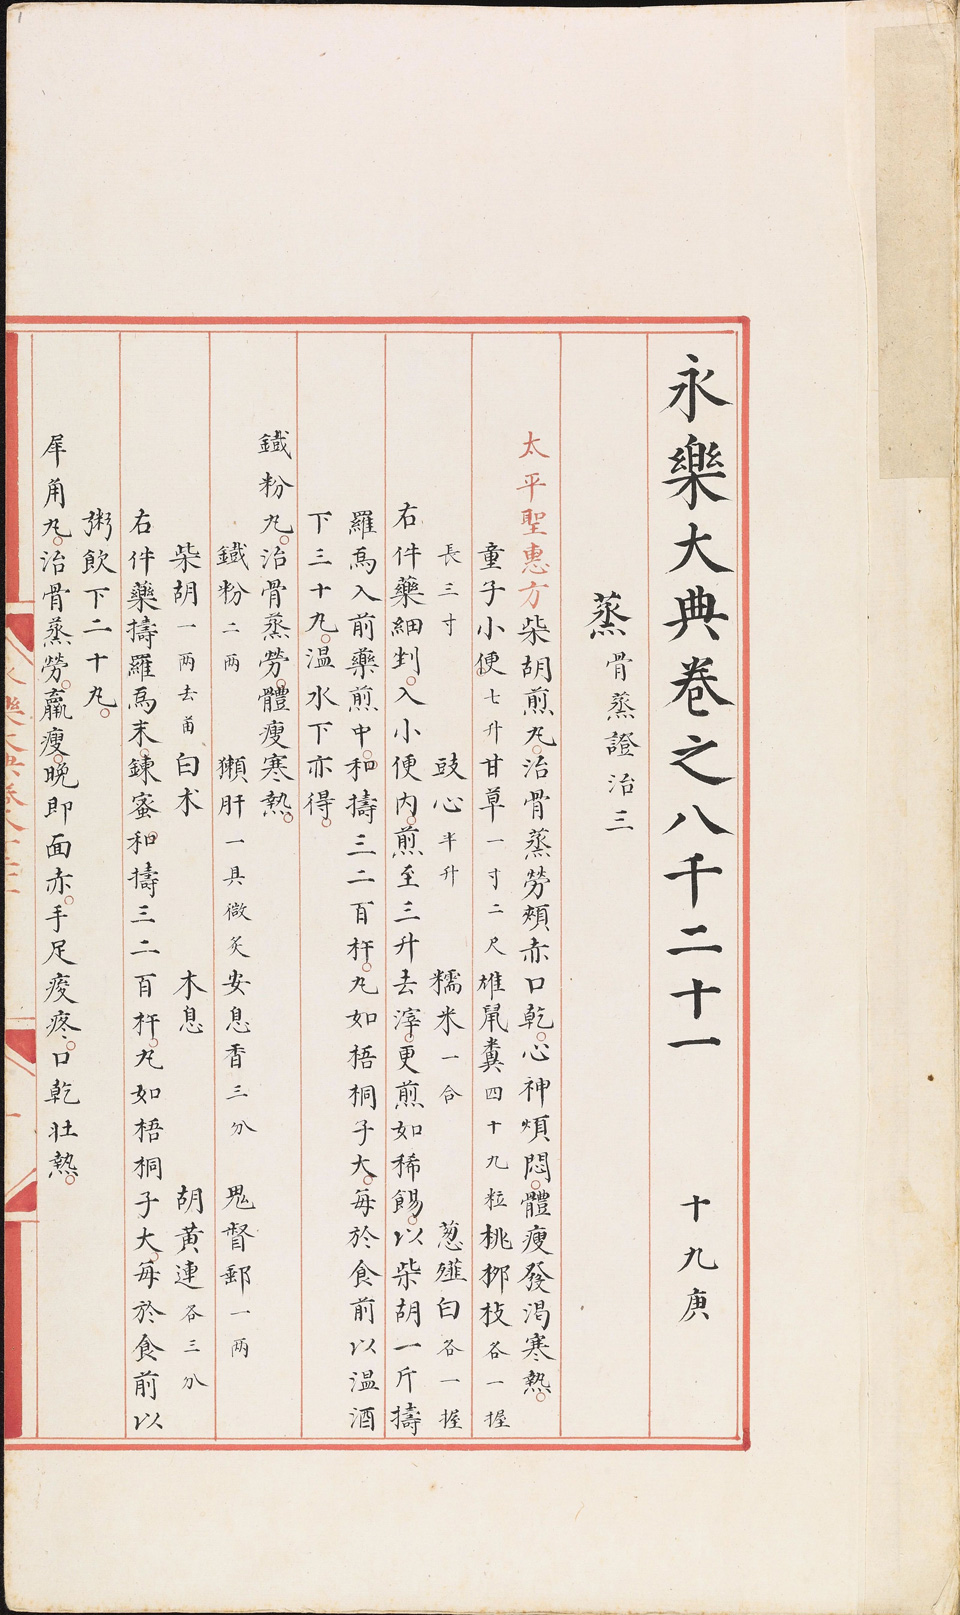 永樂大典卷之八千二十一 十九庚
蒸 骨蒸證治三
太平聖惠方柴胡煎丸。治骨蒸勞。頰赤口乾。心神煩悶。體瘦發渴寒熱。
童子小便。七升 甘草一寸二尺 雄鼠糞四十九粒 桃柳枝各一握
長三寸 豉心半升 糯米一合 葱薤白各一握
右件藥細剉。入小便內。煎至三升去滓。更煎如稀餳。以柴胡一斤擣
羅爲入前藥煎中。和擣三二百杵。丸如梧桐子大。每於食前以温酒
下三十丸。温水下亦得。
鐵粉丸。治骨蒸勞。體瘦寒熱。
鐵粉二两 獺肝一具微炙 安息香三分 鬼督郵一两
柴胡一两去苗 白术 木息 胡黄連各三分
右件藥擣羅爲末。鍊蜜和擣三二百杵。丸如梧桐子大。每於食前以
粥飲下二十丸。
犀角丸。治骨蒸勞。羸瘦。晚即面赤。手足痠疼。口乾壮熱。